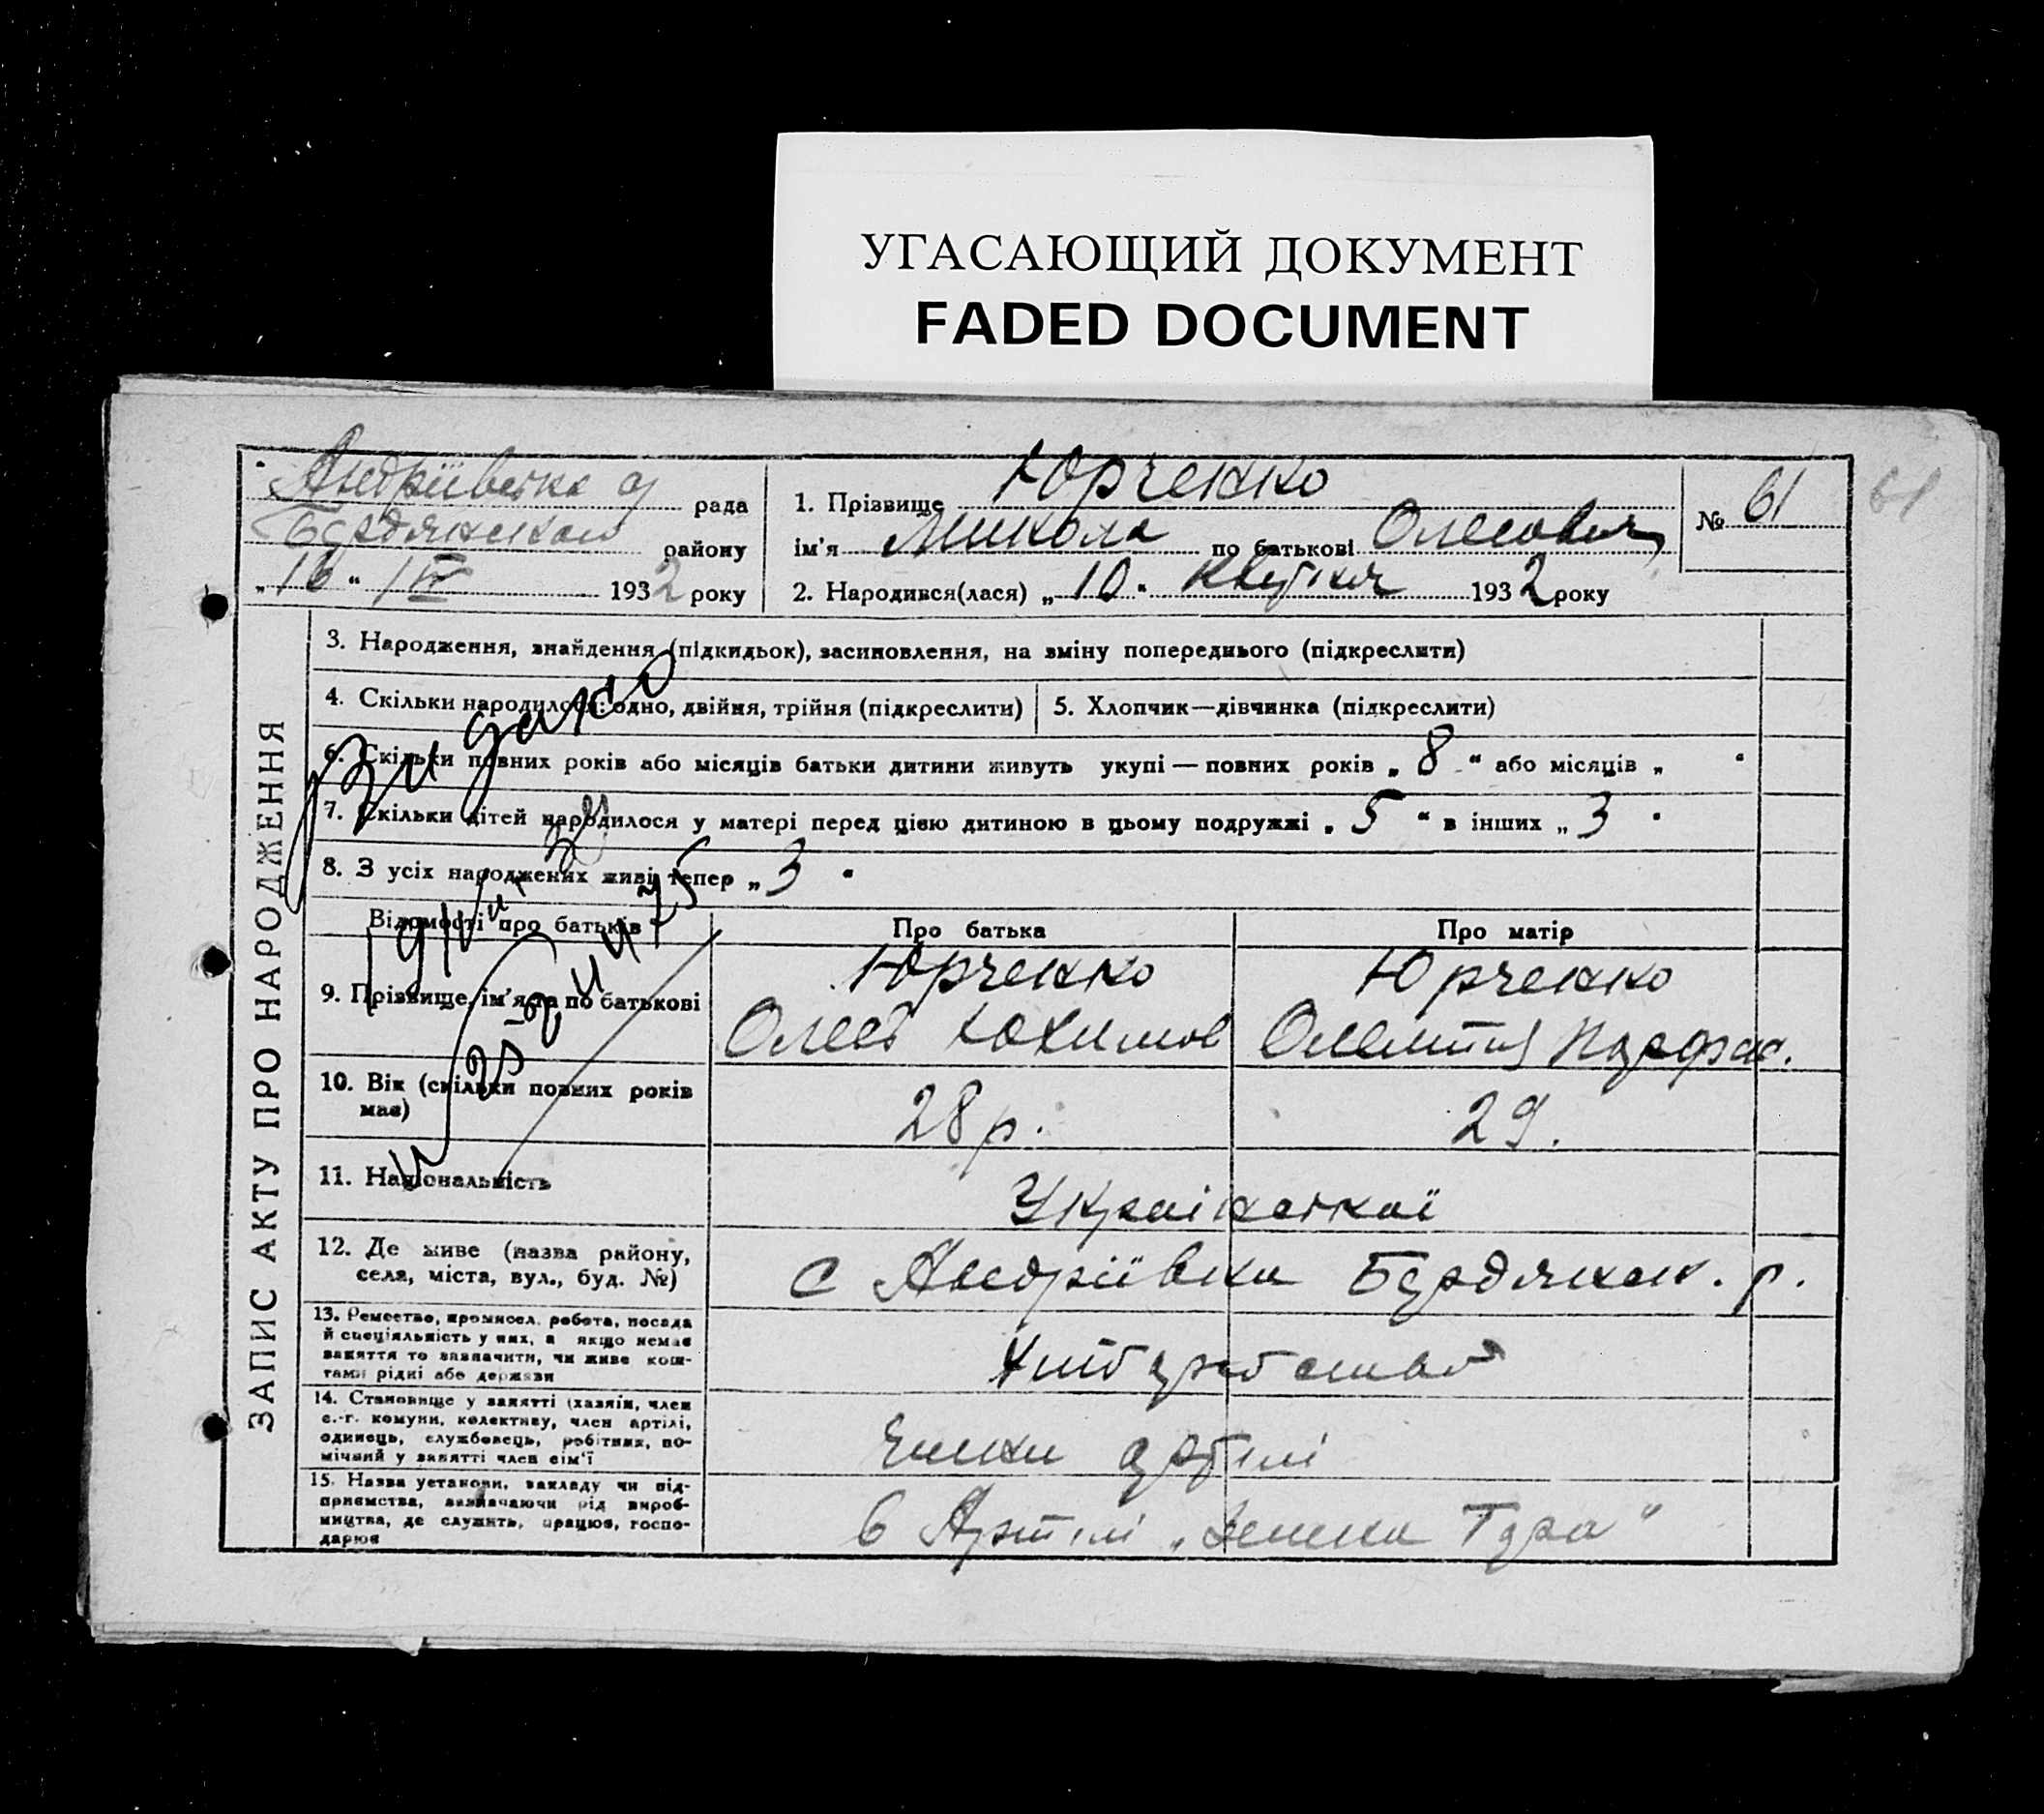 УГАСАЮЩИЙ ДОКУМЕНТ
FADED DOCUMENT
Андріївська рада
Бердянського району
„16“ IV 1932 року
1. Прізвище Юрченко
ім'я Микола по батькові Олесович
2. Народився(лася) „10“ Квітня 1932 року
№ 61
61
ЗАПИС АКТУ ПРО НАРОДЖЕННЯ
3. Народження, знайдення (підкидьок), засиновлення, на зміну попереднього (підкреслити)
4. Скільки народилося: одно, двійня, трійня (підкреслити)
5. Хлопчик—дівчинка (підкреслити)
6. Скільки повних років або місяців батьки дитини живуть укупі — повних років „8“ або місяців „ “
7. Скільки дітей народилося у матері перед цією дитиною в цьому подружжі „5“ в інших „3“
8. З усіх народжених живі тепер „3“
Відомості про батьків
Про батька
Про матір
9. Прізвище, ім'я та по батькові
Юрченко
Юрченко
10. Вік (скільки повних років має)
28 р.
29.
11. Національність
Української
12. Де живе (назва району, села, міста, вул., буд. №)
с Андріївка Бердянськ. р.
13. Ремество, промисел, робота, посада
й спеціяльність у них, а якщо немає
заняття то зазначити, чи живе кош-
тами рідні або держави
14. Становище у занятті (хазяїн, член
с.-г. комуни, колективу, член артілі,
одинець, службовець, робітник, по-
мічний у занятті член сім'ї
Члени артілі
15. Назва установи, закладу чи під-
приємства, зазначаючи рід вироб-
ництва, де служить, працює, госпо-
дарює
в Артілі